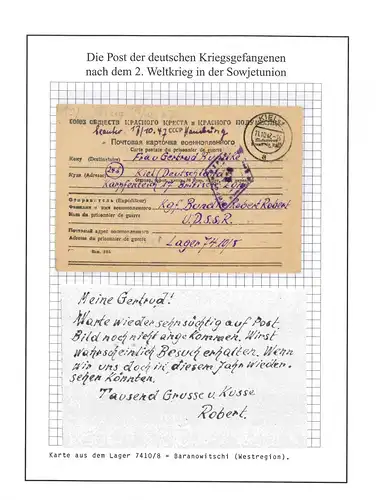 Die Post der deutschen Kriegsgefangenen
nach dem 2. Weltkrieg in der Sowjetunion
СОЮЗ ОБЩЕСТВ КРАСНОГО КРЕСТА и КРАСНОГО
СССР
KIEL
Почтовая карточка военнопленного
Carte postale du prisonnier de guerre
Кому (Destinataire) Frau Gertrud
Куда (Adresse) Kiel/Deutschland
Отправитель (Expéditeur)
Фамилия и имя военнопленного Kgf. Robert
Nom du prisonnier de guerre
U.D.S.S.R.
Почтовый адрес военнопленного
Adresse du prisonnier de guerre Lager 7410/8
Meine Gertrud!
Warte wieder sehnsüchtig auf Post.
Bild noch nicht angekommen. Wirst
wahrscheinlich Besuch erhalten. Wenn
wir uns doch in diesem Jahr wieder-
sehen könnten.
Tausend Grusse u. Kusse
Robert.
Karte aus dem Lager 7410/8 = Baranowitschi (Westregion).